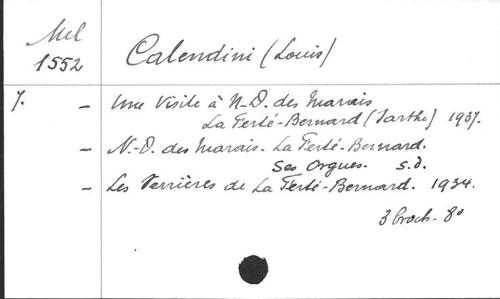 Mel
1552
Calendini (Louis)
7. - Une Visite à N-D. des Marais
La Ferté-Bernard (Sarthe) 1937.
- N.-D. des Marais. La Ferté-Bernard.
Ses Orgues. s.d.
- Les Verrières de La Ferté-Bernard. 1934.
3 broch. 8º